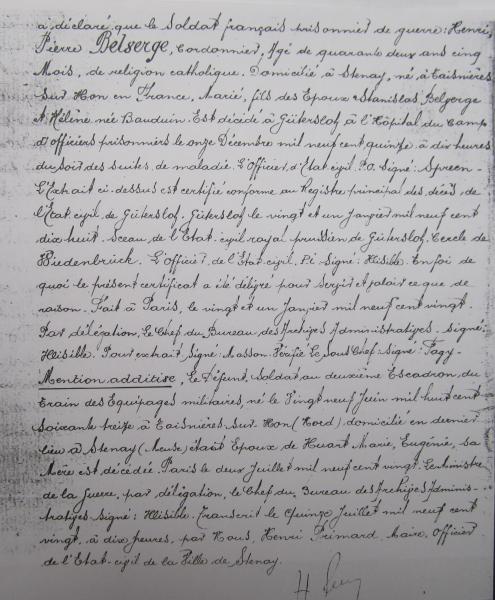 a déclaré que le Soldat français prisonnier de guerre: Henri,
Pierre Belserge, Cordonnier, Agé de quarante deux ans cinq
Mois, de religion catholique. Domicilié à Stenay, né à Taisnières
Sur Hon en France, Marié, fils des Epoux Stanislas Belgerge
& Hélène née Bauduin. Est décédé à Güterslof à l'Hôpital du Camp
d'officiers prisonniers le onze Décembre mil neuf cent quinze à dix heures
du soir des suites de maladie. L'Officier d'Etat civil. P.O. Signé: Spreen-
L'Extrait ci-dessus est certifié conforme au Registre principal des décès de
l'Etat civil de Güterslof. Güterslof le vingt et un Janvier mil neuf cent
dix huit, Sceau, de l'Etat-civil royal prussien de Güterslof. Cercle de
Wiedenbrück. L'Officier de l'Etat civil. P.i Signé: Illisible. En foi de
quoi le présent certificat a été délivré pour servir et valoir ce que de
raison. Fait à Paris, le vingt et un Janvier mil neuf cent vingt.
Par délégation, Le Chef du Bureau des Archives Administratives. Signé:
Illisible. Pour extrait Signé: Masson. Vérifié Le Sous Chef: Signé: Fagy-
Mention additive, Le Défunt, Soldat au deuxième Escadron du
train des Equipages militaires, né le Vingt neuf Juin mil huit cent
soixante treize à Taisnières sur Hon (Nord), domicilié en dernier
lieu à Stenay (Meuse) était Epoux de Huart Marie, Eugénie, sa
Mère est décédée. Paris le deux Juillet mil neuf cent vingt. Le Ministre
de la Guerre, par délégation, le Chef du Bureau des Archives Adminis-
tratives Signé: Illisible. Transcrit le Quinze Juillet mil neuf cent
vingt, à dix heures, par Nous, Henri Primard, Maire, Officier
de l'Etat-civil de la Ville de Stenay.